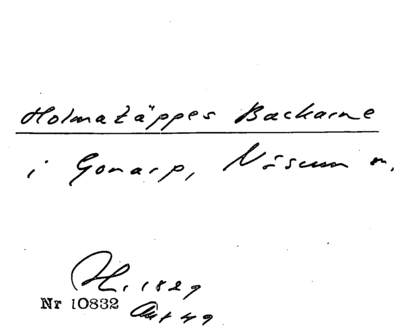 Holmatäppes Backarne
i Gonarp, Näsum m.
H. 1829
Nr 10832
Akt 49